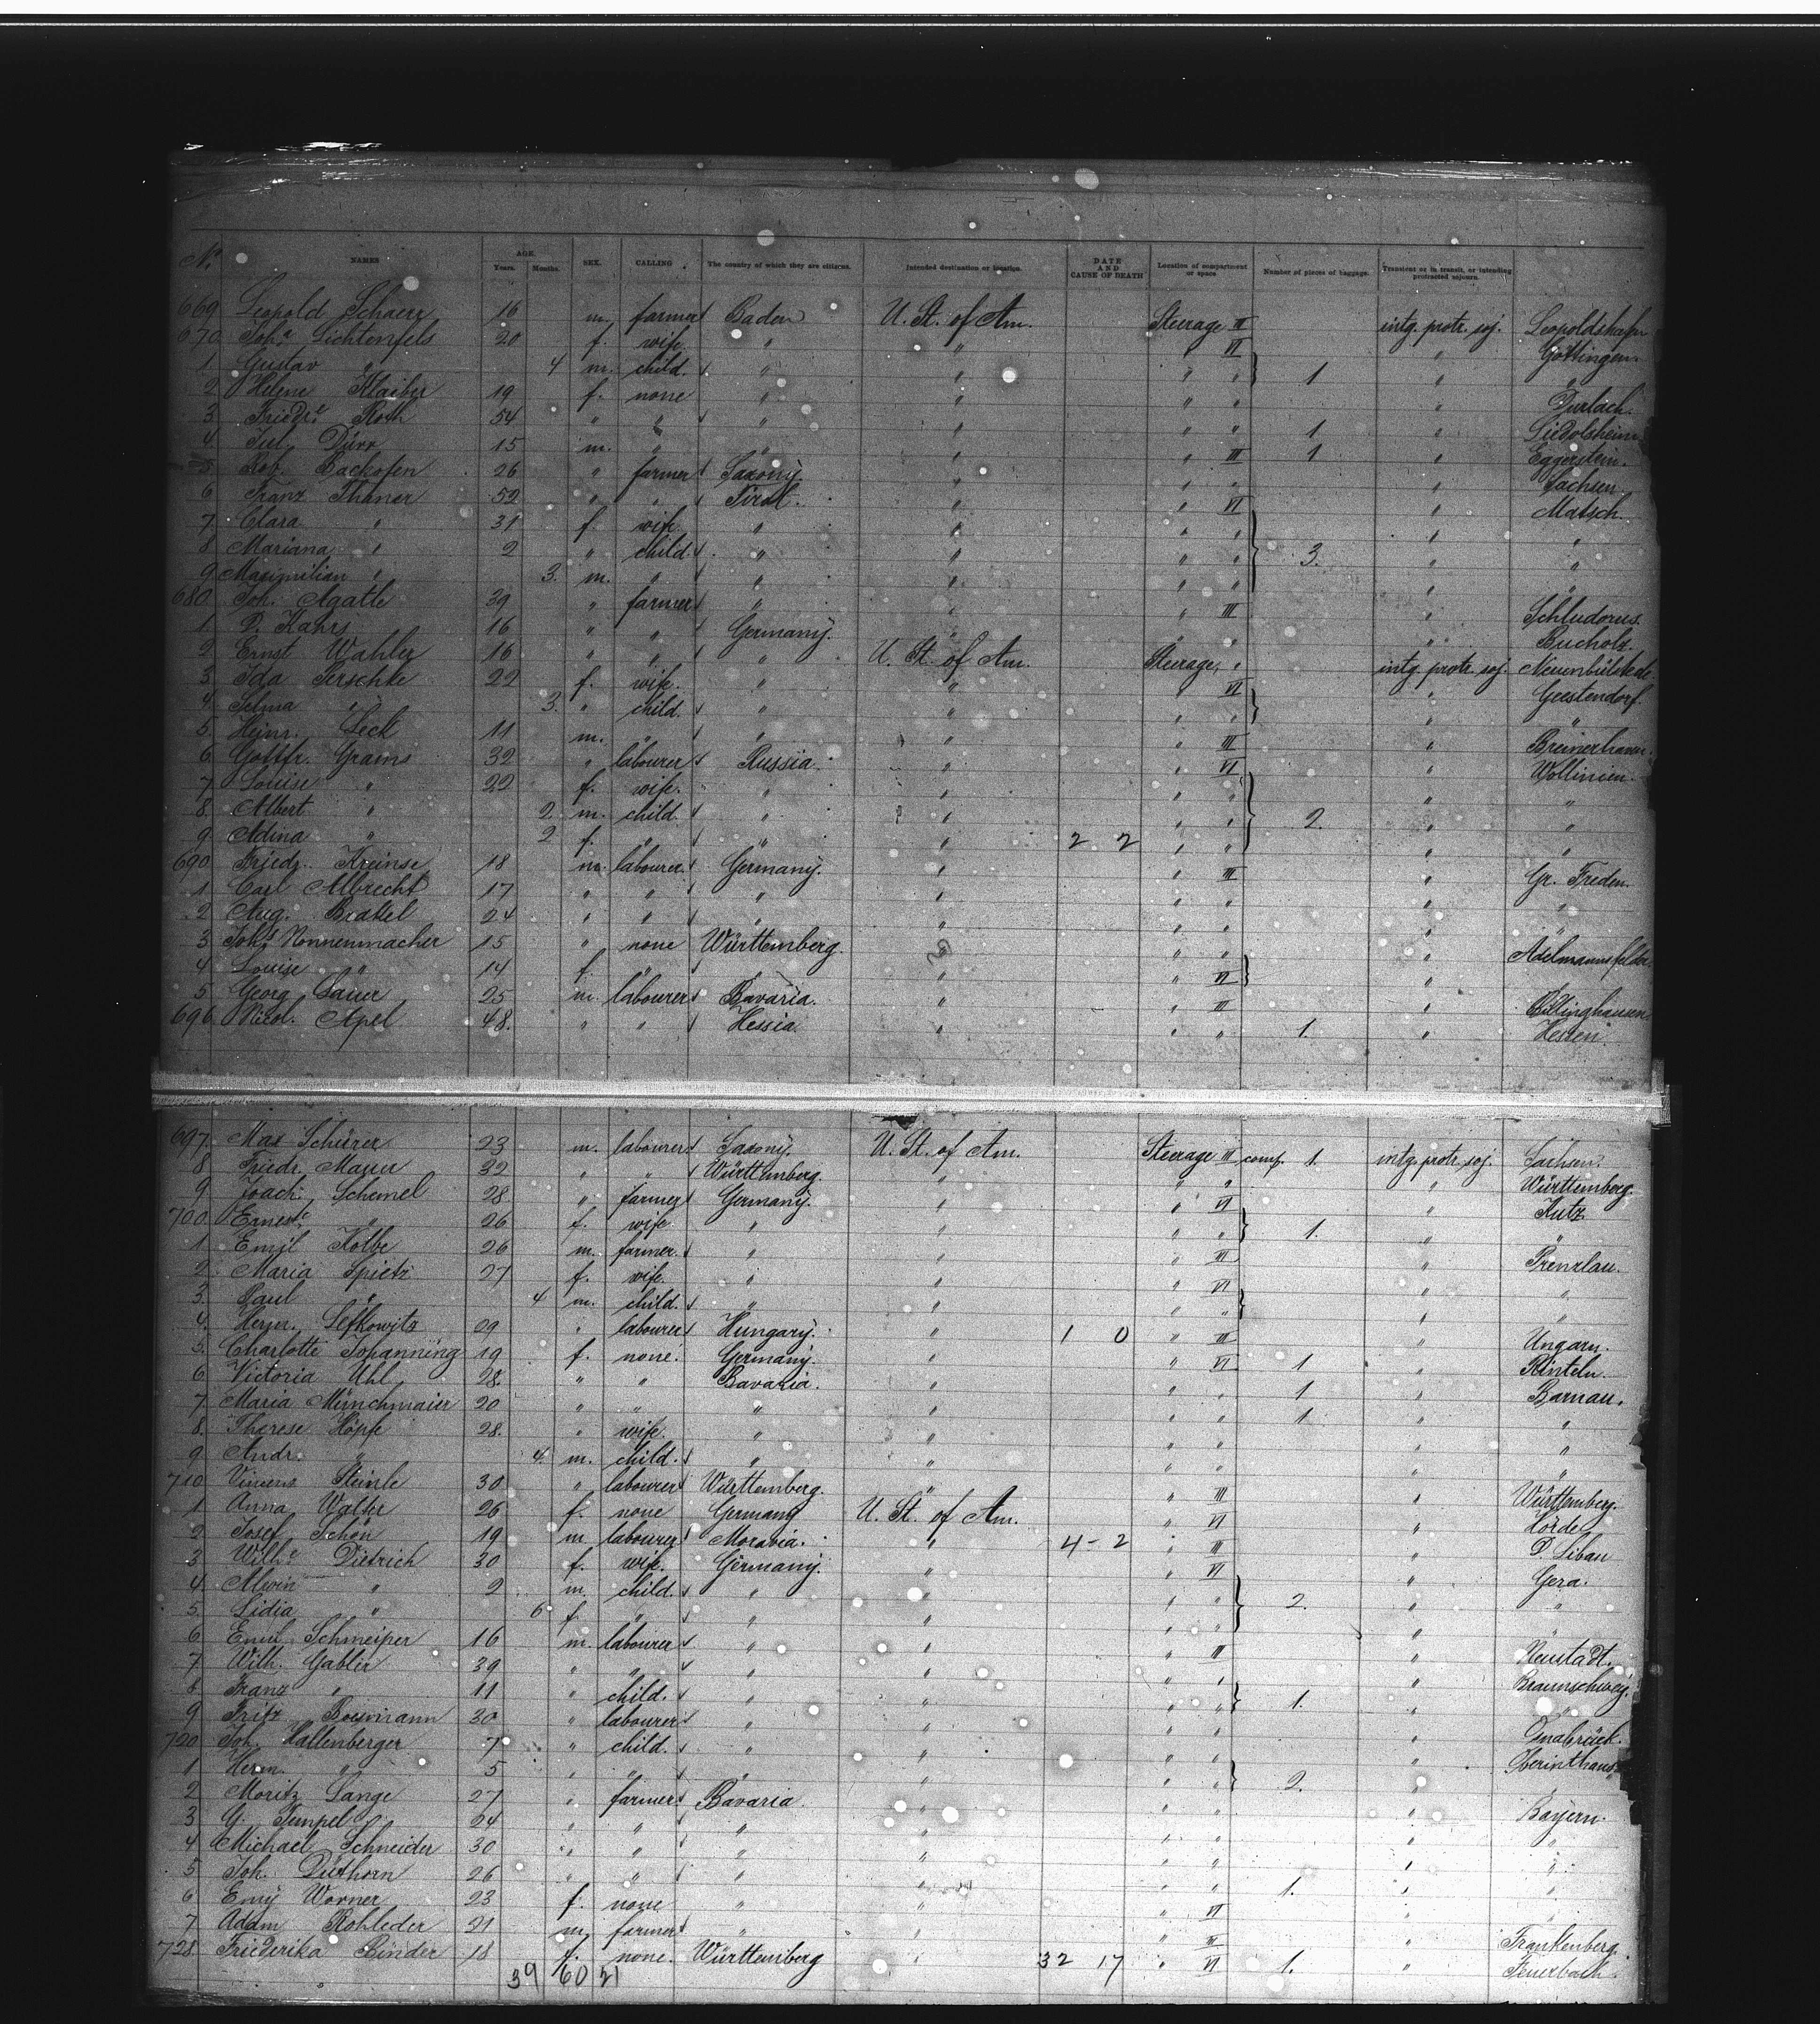 No NAMES AGE. Years. Months. SEX. CALLING The country of which they are citizens. Intended destination or location. DATE AND CAUSE OF DEATH Location of compartment or space. Number of pieces of baggage. Transient or in transit, or intending protracted sojourn.
669 Leopold 16 m. farmer Baden U. St. of Am. Steerage III intg. protr. soj. Leopoldshafn
670 Joh.a Lichtenfels 20 f. wife " " " VI " Göttingen.
1 Gustav " 4 m. child. " " " " 1 " "
2 Helene Klaiber 19 f. none " " " " " Durlach.
3 Friedr.e Roth 54 " " " " " " 1 " Liedolsheim
4 Jul. Dürr 15 m. " " " " III 1 " Eggerstein.
5 Rob. Backofen 26 " farmer Saxony. " " " " Sachsen
6 Franz Thaner 52 " " Tirol. " " VI " Matsch.
7 Clara " 31 f. wife " " " " " "
8 Mariana " 2 " child. " " " " 3. " "
9 Maximilian " 3. m. " " " " " " "
680 Joh. Agatle 39 " farmer " " " III " Schludorus.
1 D. Kahrs 16 " " Germany. " " " " Bucholz.
2 Ernst Wahler 16 " " " U. St. of Am. Steerage " intg. protr. soj.
3 Ida Perschke 22 f. wife. " " " VI " Geestendorf.
4 Selma " 3. " child. " " " " " "
5. Heinr. Leck 11 m. " " " " III " Bremerhaven.
6 Gottfr. Grams 32 " labourer Russia " " VI " Wollinien.
7 Louise " 22 f. wife. " " " " " "
8. Albert " 2 m. child. " " " " 2. " "
9 Adina " 2 f. " " " 2 2 " " " "
690 Friedr. Kreinse 18 m. labourer. Germany. " " III " Gr. Freden.
1 Carl Albrecht 17 " " " " " " " "
2 Aug. Brakel 24 " " " " " " " "
3 Joh.s Nonnenmacher 15 " none Württemberg. " " " " Adelmannsfelden
4 Louise " 14 f. " " " " VI " "
5 Georg Sauer 25 m. labourer Bavaria. " " III "
696 Nicol. Apel 48. " " Hessia " " " 1. " Hessen.
697. Max Schürer 23 m. labourer Saxony. U. St. of Am. Steerage III comp. 1. intg. protr. soj. Sachsen.
8 Friedr. Mauer 32 " " Württemberg. " " " " Württemberg.
9 Joach. Schemel 28 " farmer Germany. " " VI " Kutz
700. Ernest.e " 26 f. wife " " " " 1. " "
1 Emil Kolbe 26 m. farmer. " " " III " Prenzlau.
2 Maria Spietz 27 f. wife. " " " VI " "
3. Paul " 4 m. child. " " " " " "
4. Herm. Lefkowitz 29 " labourer Hungary. " 1 0 " III " Ungarn.
5. Charlotte Johanning 19 f. none. Germany. " " VI 1 " Rinteln.
6 Victoria Uhl 28. " " Bavaria. " " " 1 " Barnau.
7 Maria Münchmaier 20 " " " " " " 1. " "
8. Therese Höpfe 28. " wife. " " " " " "
9 Andr. " 4. m. child. " " " " " "
710 Vincens Steinle 30 " labourer Württemberg. " " III " Württemberg.
1 Anna Walter 26 f. none Germany U. St. of Am. " VI " Hörde.
2 Josef Schön 19 m. labourer Moravia. " 4-2 " III " D. Libau
3 Wilh.e Dietrich 30 f. wife. Germany. " " VI " Gera.
4 Alwin " 2 m. child. " " " " 2. " "
5. Lidia " 6. f. " " " " " " "
6 Emil Schmeiper 16 m. labourer " " " III " Neustadt.
7 Wilh. Gabler 39 " " " " " " " Braunschweig.
8 Franz " 11 " child. " " " " 1. " "
9 Fritz 30 " labourer " " " " " Osnabrück.
720 Joh. Hallenberger 7 " child. " " " " "
1 Herm. " 5 " " " " " " 2. " "
2 Moritz Lange 27 " farmer. Bavaria " " " " Bayern.
3 G. Tempel 24 " " " " " " " "
4 Michael Schneider 30 " " " " " " " "
5 Joh. Düthorn 26 " " " " " " 1. " "
6 Emy Worner 23 f. none " " " VI " "
7 Adam Rohleder 21 m. farmer " " " III " Frankenberg.
728 Friederika Binder 18 f. none. Württemberg " 32 17 " VI 1. " Feuerbach.
39 60 21